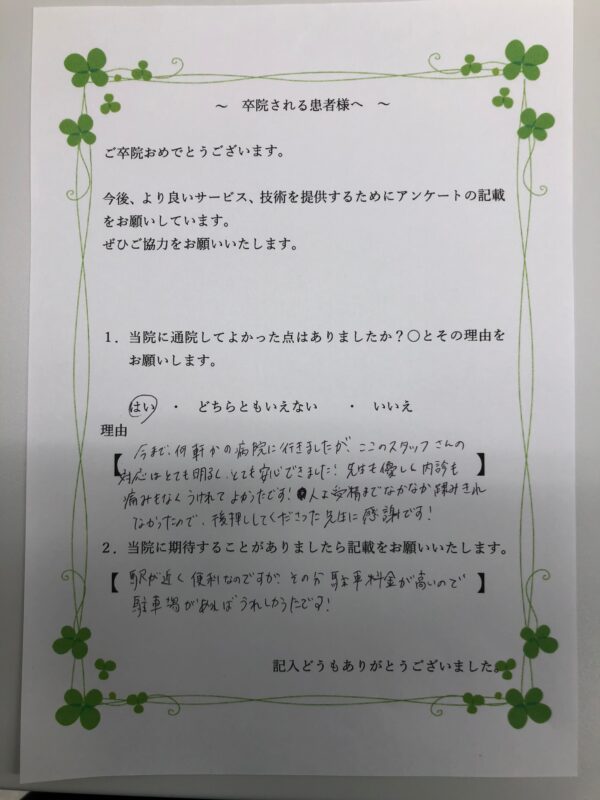 ～ 卒院される患者様へ ～
ご卒院おめでとうございます。
今後、より良いサービス、技術を提供するためにアンケートの記載
をお願いしています。
ぜひご協力をお願いいたします。
１．当院に通院してよかった点はありましたか？〇とその理由を
お願いします。
はい ・ どちらともいえない ・ いいえ
理由
【 今まで、何軒かの病院に行きましたが、ここのスタッフさんの
対応はとても明るく、とても安心できました！先生も優しく内診も
痛みもなくうけれてよかったです！人工受精までなかなか踏みきれ
なかったので、後押ししてくださった先生に感謝です！ 】
２．当院に期待することがありましたら記載をお願いいたします。
【 駅が近く便利なのですが、その分駐車料金が高いので
駐車場があればうれしかったです！ 】
記入どうもありがとうございました。